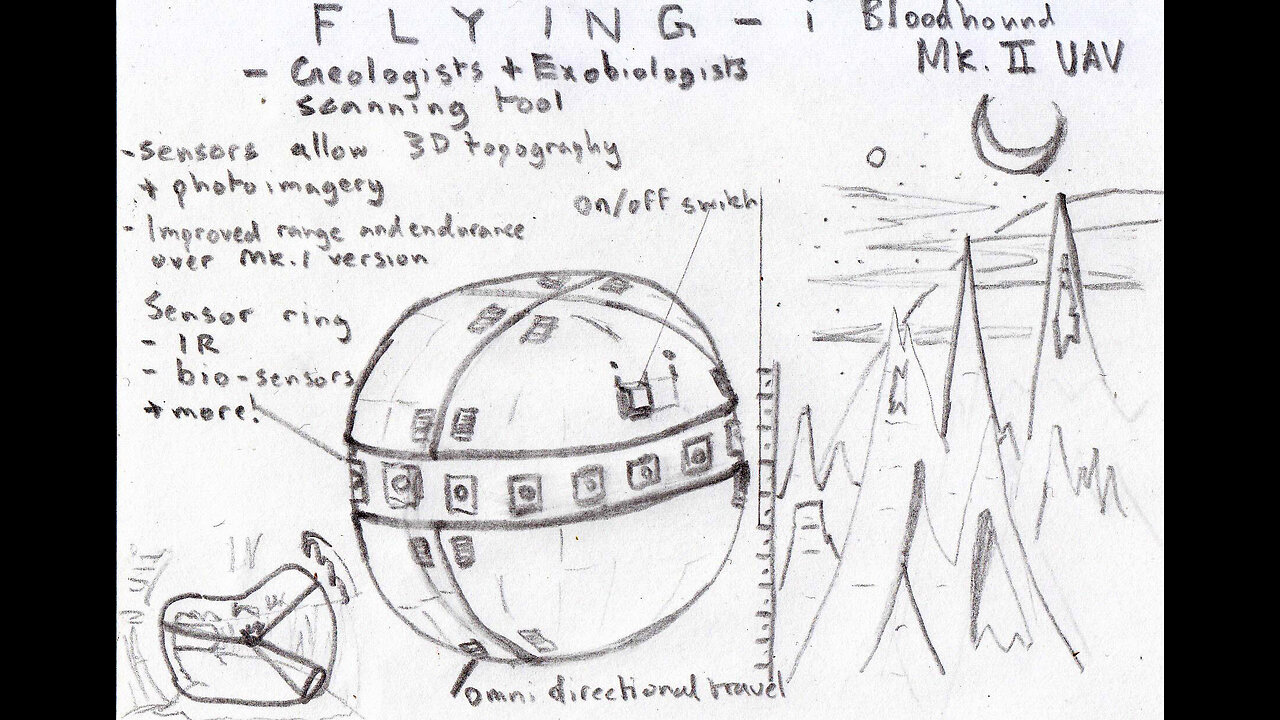 FLYING - i Bloodhound
Mk. II UAV
- Geologists + Exobiologists
scanning tool
- sensors allow 3D topography
+ photo imagery
- Improved range and endurance
over Mk. I version
on/off switch
Sensor ring
- IR
- bio-sensors
+ more!
omni directional travel